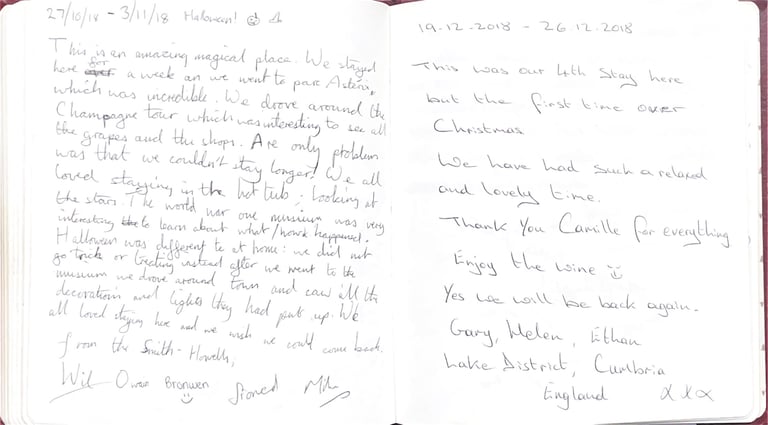 27/10/18 - 3/11/18 Halloween!
This is an amazing magical place. We stayed
here for a week an we went to parc Asterix,
which was incredible. We drove around the
Champagne tour which was interesting to see all
the grapes and the shops. Are only problem
was that we couldn't stay longer! We all
loved staying in the hot tub; looking at
the stars. The world war one musium was very
interesting to learn about what/how happened.
Halloween was different to at home: we did not
go trick or treating instead after we went to the
museum we drove around town and saw all the
decorations and lights they had put up. We
all loved staying here and we wish we could come back.
from the Smith-Howells,
Will Owen Bronwen
19.12.2018 - 26.12.2018
This was our 4th stay here
but the first time over
Christmas
We have had such a relaxed
and lovely time.
Thank You Camille for everything
Enjoy the wine
Yes we will be back again.
Gary, Helen, Ethan
Lake District, Cumbria
England xxx